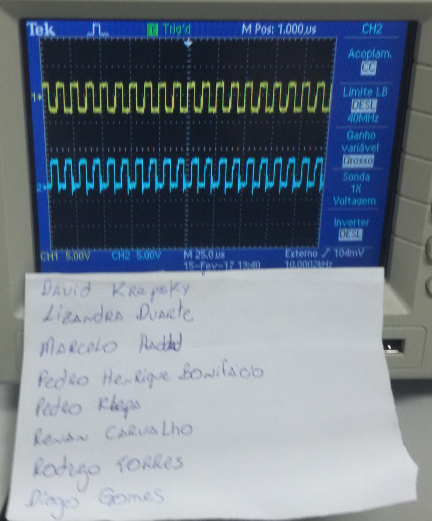 Tek Trig'd M Pos: 1.000µs CH2
Acoplam.
CC
Limite LB
DESL
40MHz
Ganho
variável
Grosso
Sonda
1X
Voltagem
Inverter
DESL
1
2
CH1 5.00V CH2 5.00V M 25.0µs Externo 104mV
15-Fev-17 13:40 10.0002kHz
David Krepsky
Lizandra Duarte
Marcelo
Pedro Henrique Bonifácio
Pedro
Renan Carvalho
Rodrigo Torres
Diogo Gomes